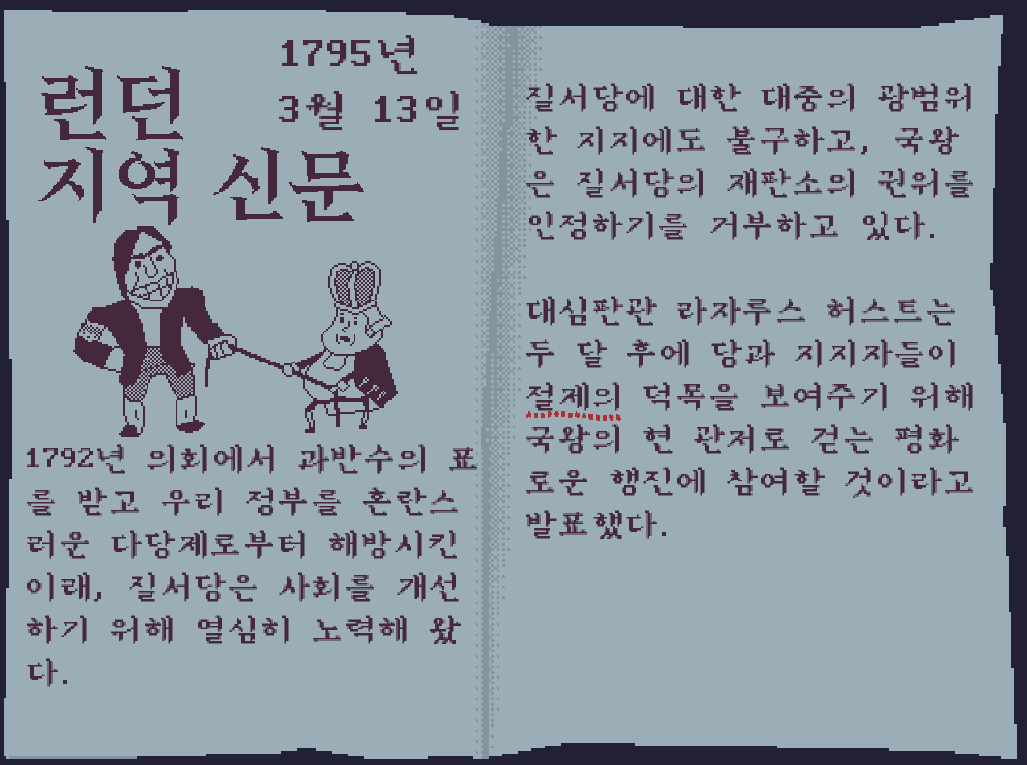 1795년
3월 13일
런던
지역 신문
1792년 의회에서 과반수의 표
를 받고 우리 정부를 혼란스
러운 다당제로부터 해방시킨
이래, 질서당은 사회를 개선
하기 위해 열심히 노력해 왔
다.
질서당에 대한 대중의 광범위
한 지지에도 불구하고, 국왕
은 질서당의 재판소의 권위를
인정하기를 거부하고 있다.
대심판관 라자루스 허스트는
두 달 후에 당과 지지자들이
절제의 덕목을 보여주기 위해
국왕의 현 관저로 걷는 평화
로운 행진에 참여할 것이라고
발표했다.